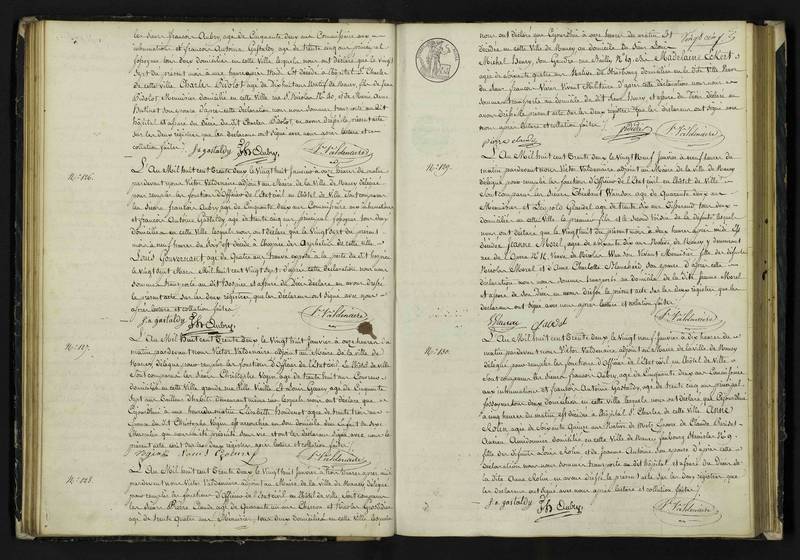 les Sieurs François Aubry, agé de Cinquante deux ans Commissaire aux
inhumations et François Antoine Gastaldy, agé de trente cinq ans principal
fossoyeur tous deux domiciliés en cette Ville lesquels nous ont déclaré que le vingt
Sept du présent mois à une heure Midi est décédé à l'hôpital St Charles
de cette ville, Charles Didolot, agé de Dix huit ans natif de Nancy, fils de Jean
Didolot, Menuisier domicilié en cette Ville rue St Nicolas No 40, et de Marie Anne
son épouse d'après cette déclaration nous nous sommes transporté au dit
hôpital et assuré du Décès du dit Charles Didolot, en avons dressé le présent acte
sur les deux registres que les déclarans ont signé avec nous après lecture et
collation faites.
f. a. gastaldy Aubry Vr Valdenaire
No 126.
L'An Mil huit cent Trente deux le Vingt huit Janvier à onze heures du matin
pardevant nous Victor Valdenaire adjoint au Maire de la Ville de Nancy délégué
pour remplir les fonctions d'Officier de l'Etat civil en l'hôtel de Ville sont comparus
les Sieurs François Aubry agé de Cinquante deux ans Commissaire aux inhumations
et François Antoine Gastaldy, agé de trente cinq ans, principal fossoyeur tous deux
domiciliés en cette ville lesquels nous ont déclaré que le vingt Sept du présent
mois à neuf heures du Soir est décédé à l'hospice des Orphelins de cette ville
Louis Gouvernant agé de Quatre ans trouvé exposé à la porte du dit hospice
le vingt Mars Mil huit cent vingt Sept d'après cette déclaration nous nous
sommes transporté au dit hospice et assuré du décès en avons dressé
le présent acte sur les deux registres que les déclarans ont signé avec nous
après lecture et collation faites.
f. a. gastaldy Aubry Vr Valdenaire
No 127.
L'An Mil Huit cent Trente deux le Vingt huit Janvier à onze heures du
matin pardevant nous Victor Valdenaire adjoint au Maire de la ville de
Nancy délégué pour remplir les fonctions d'Officier de l'Etat civil En l'hôtel de ville
sont comparus les Sieurs Christophe agé de trente huit ans
domicilié en cette Ville grande rue Ville Vieille et Louis agé de Cinquante
Sept ans Tailleur d'habits lesquels nous ont déclaré que
Cejourd'hui à une heure du matin Elisabeth agé de trente trois ans
Epouse du dit Christophe est accouchée en son domicile d'un Enfant du Sexe
Masculin qui nous a été présenté sans vie, et ont les déclarans signé avec nous le
présent acte écrit sur les deux registres après lecture et collation faites.
Vr Valdenaire
No 128.
L'An Mil Huit cent Trente deux le Vingt huit Janvier à trois heures après midi
pardevant nous Victor Valdenaire, adjoint au Maire de la Ville de Nancy délégué
pour remplir les fonctions d'Officier de l'Etat civil en l'hôtel de ville sont comparus
les Sieurs Pierre Claude agé de Quarante un ans et Nicolas
agé de trente Quatre ans Menuisier, tous deux domiciliés en cette ville, lesquels
Vingt cinq
nous ont déclaré que Cejourd'hui à onze heures du matin Est
décédée en cette Ville de Nancy au domicile du Sieur Louis
Michel Henry, son Gendre rue No 19, Marie Madelaine Eckert,
agée de soixante quatre ans Native de Strasbourg domiciliée en la dite Ville Veuve
du Sieur François Vivant Militaire d'après cette déclaration nous nous
sommes transporté au domicile du dit Sieur Henry et assuré du Décès déclaré en
avons dressé le présent acte sur les deux registres que les déclarans ont signé avec
nous après lecture et collation faites.
pierre claude Vr Valdenaire
No 129.
L'An Mil huit cent Trente deux le Vingt Neuf Janvier à neuf heures du
matin pardevant nous Victor Valdenaire adjoint au Maire de la Ville de Nancy
délégué pour remplir les fonctions d'Officier de l'Etat civil en l'hôtel de Ville
sont comparus les Sieurs agé de Quarante deux ans
Menuisier et Léopold agé de trente Six ans tous deux
domiciliés en cette Ville le premier fils et le second de la défunte lesquels
nous ont déclaré que le Vingt huit du présent mois à deux heures après midi Est
décédée Jeanne Morel, agée de soixante dix ans Native de Nancy y demeurant
rue de No Veuve de Nicolas Vivant Menuisier fille des défunts
Nicolas Morel et d'Anne Charlotte Blanchard, son épouse d'après cette
déclaration nous nous sommes transporté au domicile de la dite Jeanne Morel
et assuré de son Décès en avons dressé le présent acte sur les deux registres que les
déclarans ont signé avec nous après lecture et collation faites.
Vr Valdenaire
No 130.
L'An Mil Huit cent Trente deux le Vingt neuf Janvier à dix heures du
matin pardevant nous Victor Valdenaire adjoint au Maire de la Ville de Nancy
délégué pour remplir les fonctions d'Officier de l'Etat civil en l'hôtel de Ville
sont comparus les Sieurs François Aubry, agé de Cinquante deux ans Commissaire
aux inhumations et François Antoine Gastaldy, agé de trente cinq ans principal
fossoyeur tous deux domiciliés en cette Ville lesquels nous ont déclaré que Cejourd'hui
à cinq heures du matin est décédée à l'hôpital St Charles de cette Ville Anne
Rolin, agée de soixante Quinze ans Native de Metz Epouse de Claude
domiciliée en cette Ville de Nancy faubourg Stanislas No 9.
fille des défunts Rolin et de Jeanne son épouse d'après cette
déclaration nous nous sommes transporté au dit hôpital et assuré du Décès de
la dite Anne Rolin en avons dressé le présent acte sur les deux registres que
les déclarans ont signé avec nous après lecture et collation faites.
f. a. gastaldy Aubry Vr Valdenaire